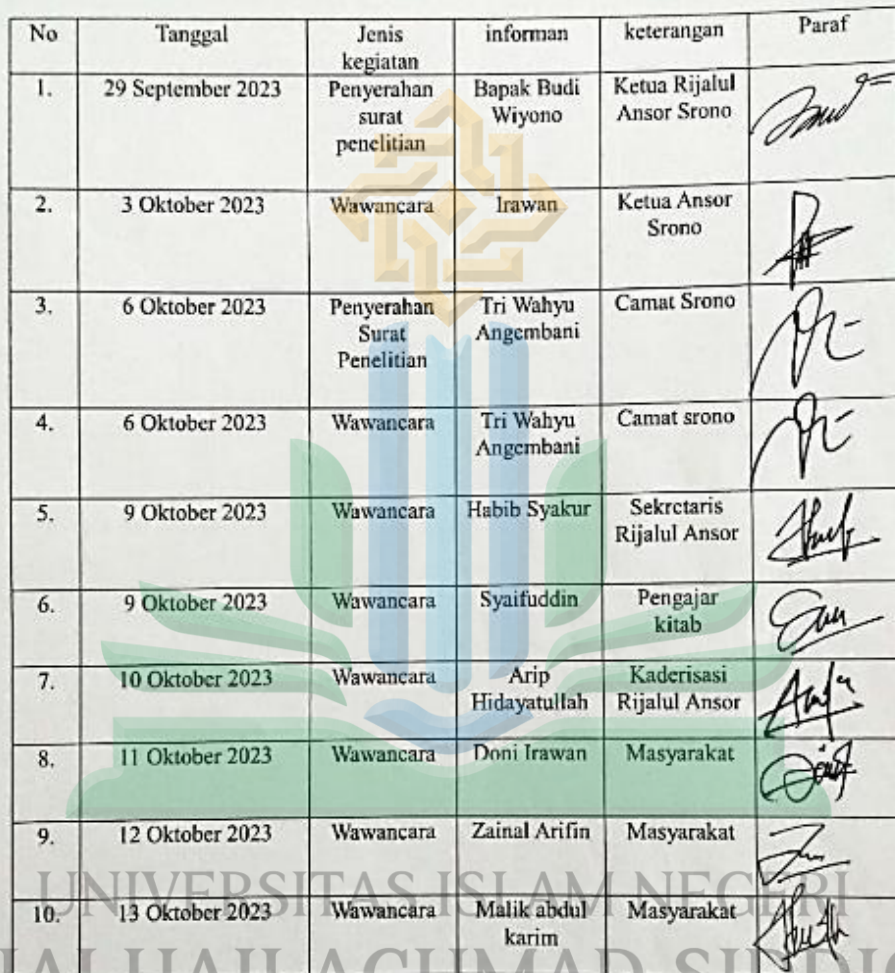 No Tanggal Jenis kegiatan informan keterangan Paraf
1. 29 September 2023 Penyerahan surat penelitian Bapak Budi Wiyono Ketua Rijalul Ansor Srono
2. 3 Oktober 2023 Wawancara Irawan Ketua Ansor Srono
3. 6 Oktober 2023 Penyerahan Surat Penelitian Tri Wahyu Angembani Camat Srono
4. 6 Oktober 2023 Wawancara Tri Wahyu Angembani Camat srono
5. 9 Oktober 2023 Wawancara Habib Syakur Sekretaris Rijalul Ansor
6. 9 Oktober 2023 Wawancara Syaifuddin Pengajar kitab
7. 10 Oktober 2023 Wawancara Arip Hidayatullah Kaderisasi Rijalul Ansor
8. 11 Oktober 2023 Wawancara Doni Irawan Masyarakat
9. 12 Oktober 2023 Wawancara Zainal Arifin Masyarakat
UNIVERSITAS ISLAM NEGERI
10. 13 Oktober 2023 Wawancara Malik abdul karim Masyarakat
HAJI ACHMAD